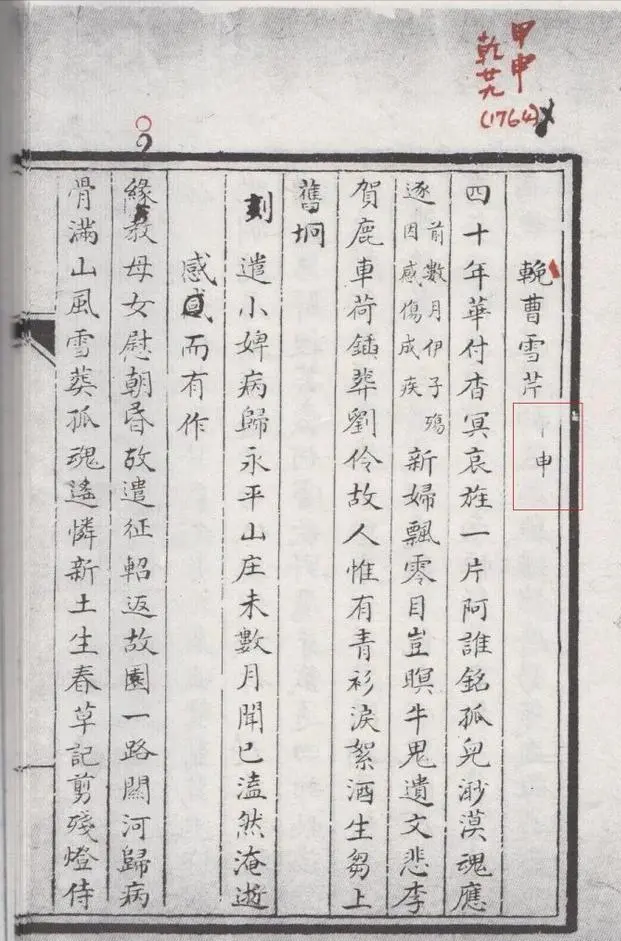 甲申
乾廿九
(1764)
輓曹雪芹 申
四十年華付杳冥哀旌一片阿誰銘孤兒渺漠魂應
逐前數月伊子殤因感傷成疾新婦飄零目豈瞑牛鬼遺文悲李
賀鹿車荷鍤葬劉伶故人惟有青衫淚絮酒生芻上
舊坰
刻 遣小婢病歸永平山庄未數月聞已溘然淹逝
感而有作
緣教母女慰朝昏故遣征軺返故園一路關河歸病
骨滿山風雪葬孤魂遙憐新土生春草記剪殘燈侍